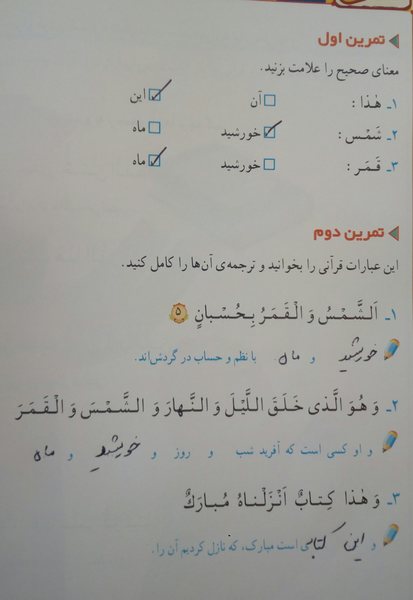 تمرین اول
معنای صحیح را علامت بزنید.
۱ـ هٰذا : آن این
۲ـ شَمْس : خورشید ماه
۳ـ قَمَر : خورشید ماه
تمرین دوم
این عبارات قرآنی را بخوانید و ترجمه‌ی آن‌ها را کامل کنید.
۱ـ اَلشَّمْسُ وَ الْقَمَرُ بِحُسْبانٍ ۵
خورشید و ماه با نظم و حساب در گردش‌اند.
۲ـ وَ هُوَ الَّذی خَلَقَ اللَّیْلَ وَ النَّهارَ وَ الشَّمْسَ وَ الْقَمَرَ
و او کسی است که آفرید شب و روز و خورشید و ماه
۳ـ وَ هٰذا کِتابٌ اَنْزَلْناهُ مُبارَكٌ
و این کتابی است مبارک، که نازل کردیم آن را.